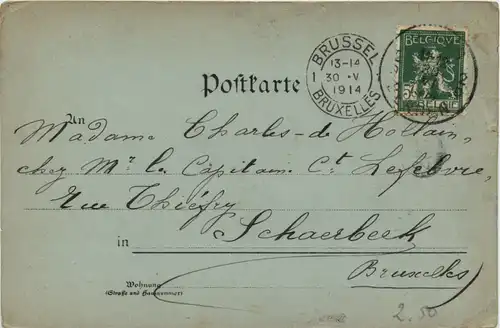 BRUSSEL
13-14
1 30 V
1914
BRUXELLES
BELGIQUE
5
BELGIE
Postkarte
An
Madame Charles de Holtain,
chez Mr. le Capitain. Ct Lefebvre,
Rue Thiéfry
in Schaerbeek
Bruxelles
Wohnung
(Straße und Hausnummer)
2.50